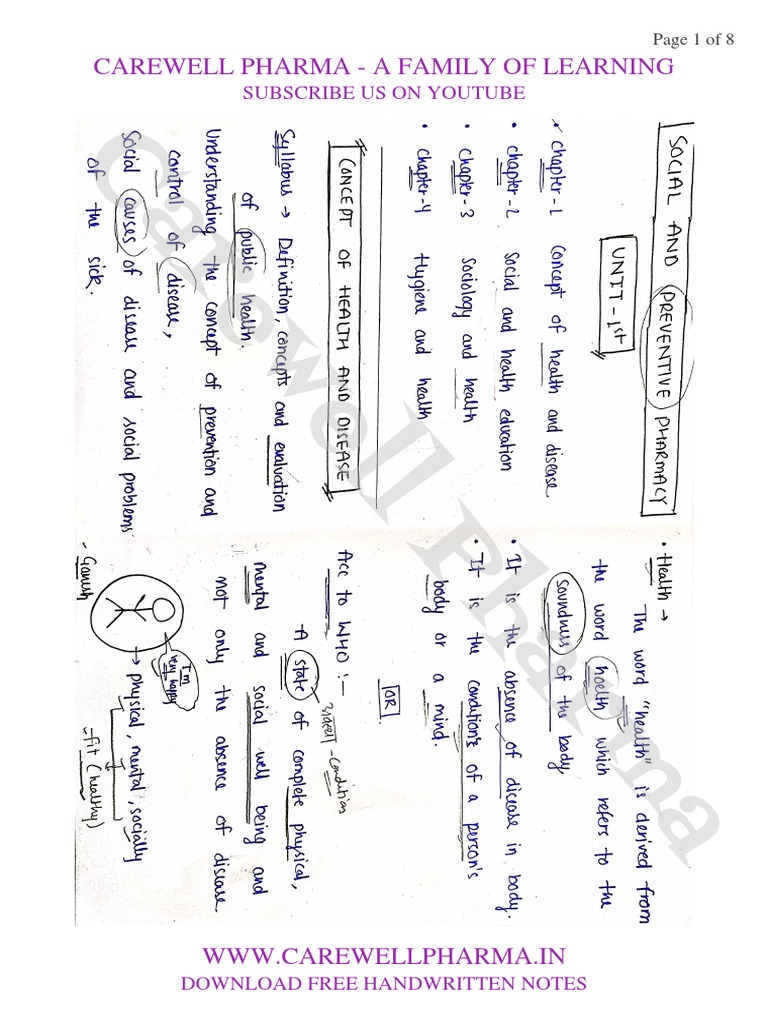 Page 1 of 8
CAREWELL PHARMA - A FAMILY OF LEARNING
SUBSCRIBE US ON YOUTUBE
SOCIAL AND PREVENTIVE PHARMACY
UNIT - 1st
• chapter-1 concept of health and disease
• chapter-2 social and health education
• chapter-3 sociology and health
• chapter-4 Hygiene and health
CONCEPT OF HEALTH AND DISEASE
Syllabus → Definition, concepts and evaluation
of public health.
Understanding the concept of prevention and
control of disease,
Social causes of disease and social problems
of the sick.
• Health →
The word "health" is derived from
the word hoelth which refers to the
soundness of the body
• It is the absence of disease in body.
• It is the condition's of a person's
body or a mind.
OR
- condition
Acc to WHO :-
A state of complete physical,
mental and social well being and
not only the absence of disease.
I'm
very happy
→ physical, mental, socially
- fit (healthy)
- Ganesh
Carewell Pharma
WWW.CAREWELLPHARMA.IN
DOWNLOAD FREE HANDWRITTEN NOTES